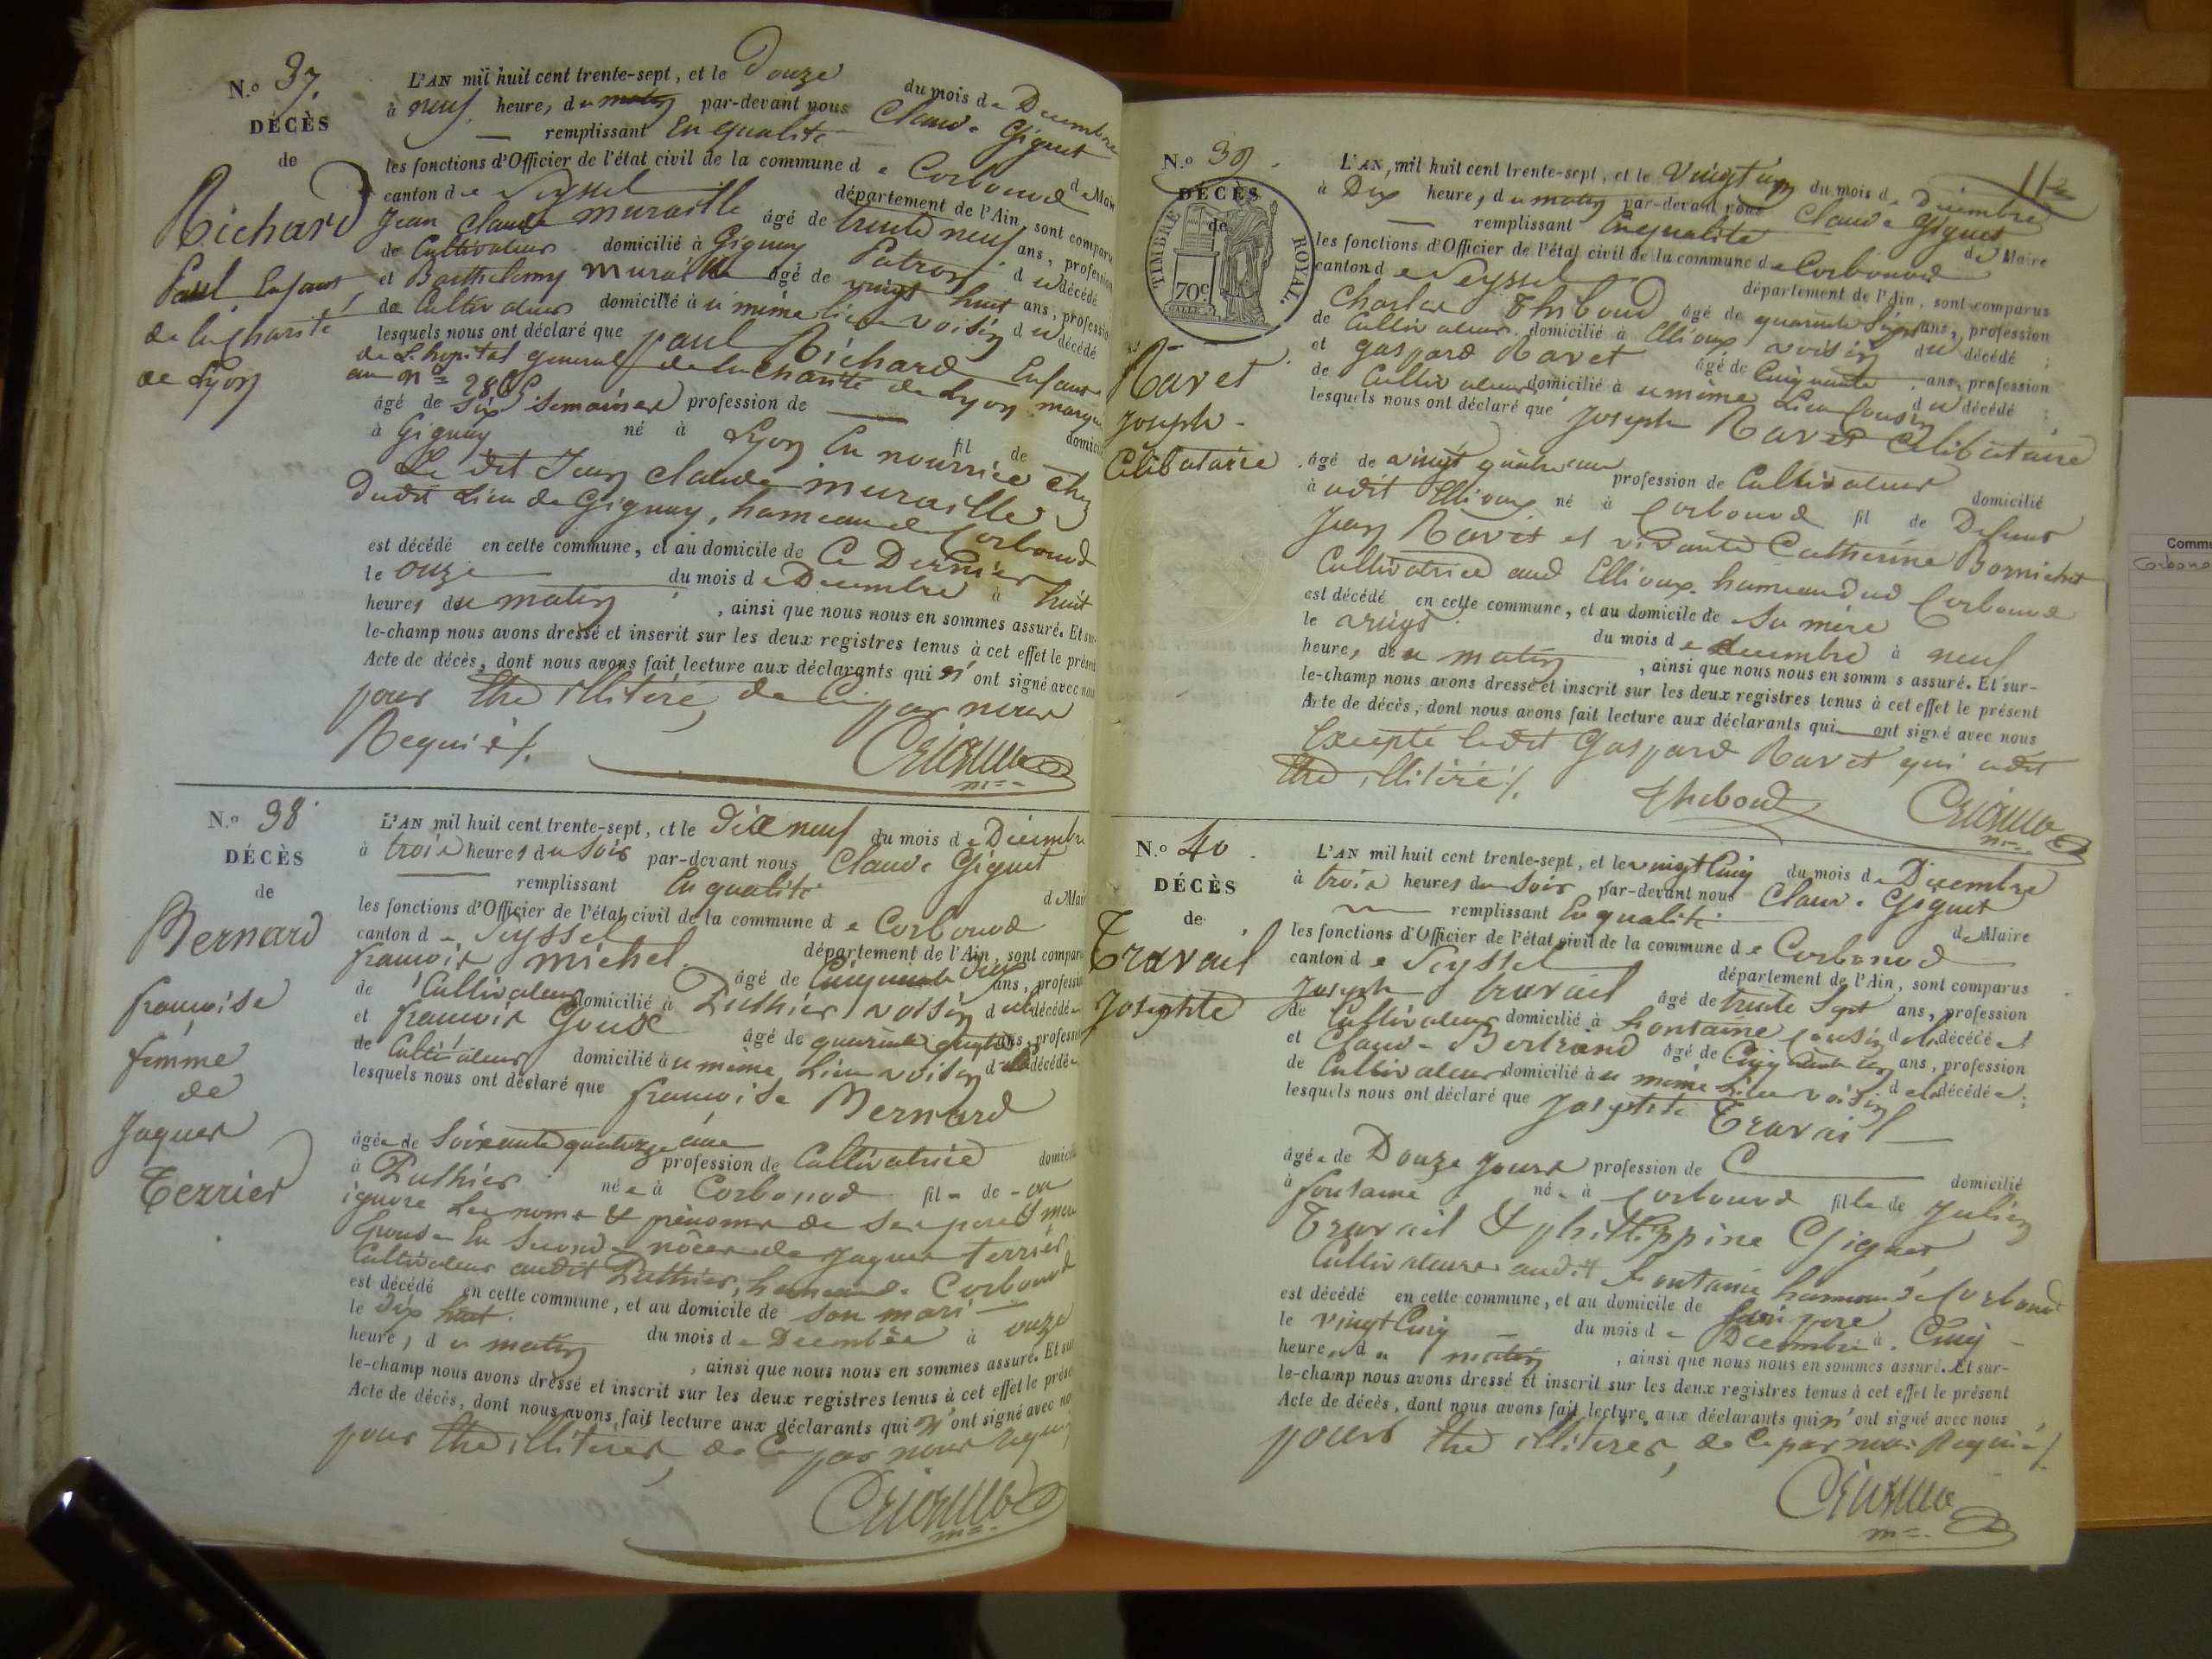 N.º 37.
DÉCÈS
de
Richard
Paul Enfant
de la charité
de Lyon
L'AN mil huit cent trente-sept, et le Douze du mois de Decembre
à neuf heures, du matin par-devant nous Claude Giguet
— remplissant En qualité de Mair
les fonctions d'Officier de l'état civil de la commune de Corbonod
canton de Seyssel département de l'Ain, sont comparu
Jean Claude muraille âgé de trente neuf ans, profession
de Cultivateur domicilié à Gignay Patron du décédé
et Barthelemy muraille âgé de vingt huit ans, profession
de Cultivateur domicilié à u même lieu voisin du décédé
lesquels nous ont déclaré que paul Richard Enfant
de L'hopital general de la charité de Lyon marqué
au nº
âgé de six Semaines profession de — domici
à Gignay né à Lyon fil de
En nourrice chez
Le dit Jean claude muraille
dudit Lieu de Gignay, hameau de Corbonod
est décédé en cette commune, et au domicile de Ce Dernier
le onze du mois de Decembre à huit
heures du matin, ainsi que nous nous en sommes assuré. Et sur-
le-champ nous avons dressé et inscrit sur les deux registres tenus à cet effet le présent
Acte de décès, dont nous avons fait lecture aux déclarants qui n'ont signé avec nous
pour être illiteré, de Ce par nous
Requis /.
N.º 38
DÉCÈS
de
Bernard
françoise
femme
de
Jaques
Terrier
L'AN mil huit cent trente-sept, et le dix neuf du mois de Décembre
à trois heures du soir par-devant nous Claude Giguet
— remplissant En qualité de Mair
les fonctions d'Officier de l'état civil de la commune de Corbonod
canton de Seyssel département de l'Ain, sont compar
françois michel âgé de Cinquante deux ans, professi
de Cultivateur domicilié à Puthier voisin d décédée
et françois Gouse âgé de quarante ans, profess
de Cultivateur domicilié à u même Lieu voisin d décédée
lesquels nous ont déclaré que françoise Bernard
âgée de soixante quatorze ans profession de Cultivatrice domicili
à Puthier née à Corbonod fil de on
ignore les noms & prénoms de Ses pere & mere
Epouse En Seconde nôces de Jaques Terrier
Cultivateur audit Puthier, hameau de Corbonod
est décédé en cette commune, et au domicile de son mari
le dix huit du mois de Decembre à onze
heures, du matin, ainsi que nous nous en sommes assuré. Et sur
le-champ nous avons dressé et inscrit sur les deux registres tenus à cet effet le prése
Acte de décès, dont nous avons fait lecture aux déclarants qui n'ont signé avec no
pour être illiterés, de Ce par nous requis
N.º 39.
DÉCÈS
de
TIMBRE ROYAL.
70c
Ravet
Joseph
Célibataire
112
L'AN, mil huit cent trente-sept, et le vingt un du mois de Décembre
à Dix heures, du matin par-devant nous Claude Giguet
— remplissant En qualité de Maire
les fonctions d'Officier de l'état civil de la commune de Corbonod
canton de Seyssel département de l'Ain, sont comparus
Charles Thiboud âgé de quarante Sept ans, profession
de Cultivateur domicilié à Ellioux voisin du décédé
et gaspard Ravet âgé de Cinquante ans, profession
de Cultivateur domicilié à u même Lieu Cousin du décédé ;
lesquels nous ont déclaré que Joseph Ravet Célibataire
âgé de vingt quatre ans profession de Cultivateur domicilié
à udit Ellioux né à Corbonod fil de Defunt
Jean Ravet et vivante Catherine Bornichet
Cultivatrice aud Ellioux hameau dud Corbonod
est décédé en cette commune, et au domicile de Sa mère
le vingt du mois de decembre à neuf
heures, du matin, ainsi que nous nous en somm s assuré. Et sur-
le-champ nous avons dressé et inscrit sur les deux registres tenus à cet effet le présent
Acte de décès, dont nous avons fait lecture aux déclarants qui — ont signé avec nous
Excepté ledit Gaspard Ravet qui adit
être illiteré /.
Thiboud
N.º 40.
DÉCÈS
de
Travail
Josephte
L'AN mil huit cent trente-sept, et le vingt Cinq du mois de Decembre
à trois heures du soir par-devant nous Claude Giguet
— remplissant En qualité de Maire
les fonctions d'Officier de l'état civil de la commune de Corbonod
canton de Seyssel département de l'Ain, sont comparus
Joseph travail âgé de trente Sept ans, profession
de Cultivateur domicilié à fontaine cousin de la décédée
et Claude Bertrand âgé de Cinquante un ans, profession
de Cultivateur domicilié à u même Lieu voisin de la décédée ;
lesquels nous ont déclaré que Josephte Travail
âgée de Douze Jours profession de — domicilié
à fontaine née à Corbonod fille de Julien
Travail & phillippine Giguet
Cultivateurs audit fontaine hameau de Corbonod
est décédé en cette commune, et au domicile de Son pere
le vingt Cinq du mois de Decembre à Cinq
heures du matin, ainsi que nous nous en sommes assuré. Et sur-
le-champ nous avons dressé et inscrit sur les deux registres tenus à cet effet le présent
Acte de décès, dont nous avons fait lecture aux déclarants qui n'ont signé avec nous
pour être illiterés, de Ce par nous Requis /.
Commu